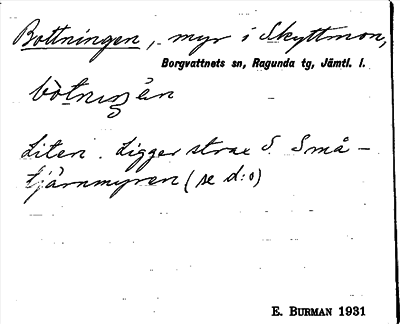 Bottningen, myr i Skyttmon,
Borgvattnets sn, Ragunda tg, Jämtl. l.
bòtniŋən
Liten. Ligger strax S. Små-
tjärnmyren (se d:o)
E. BURMAN 1931